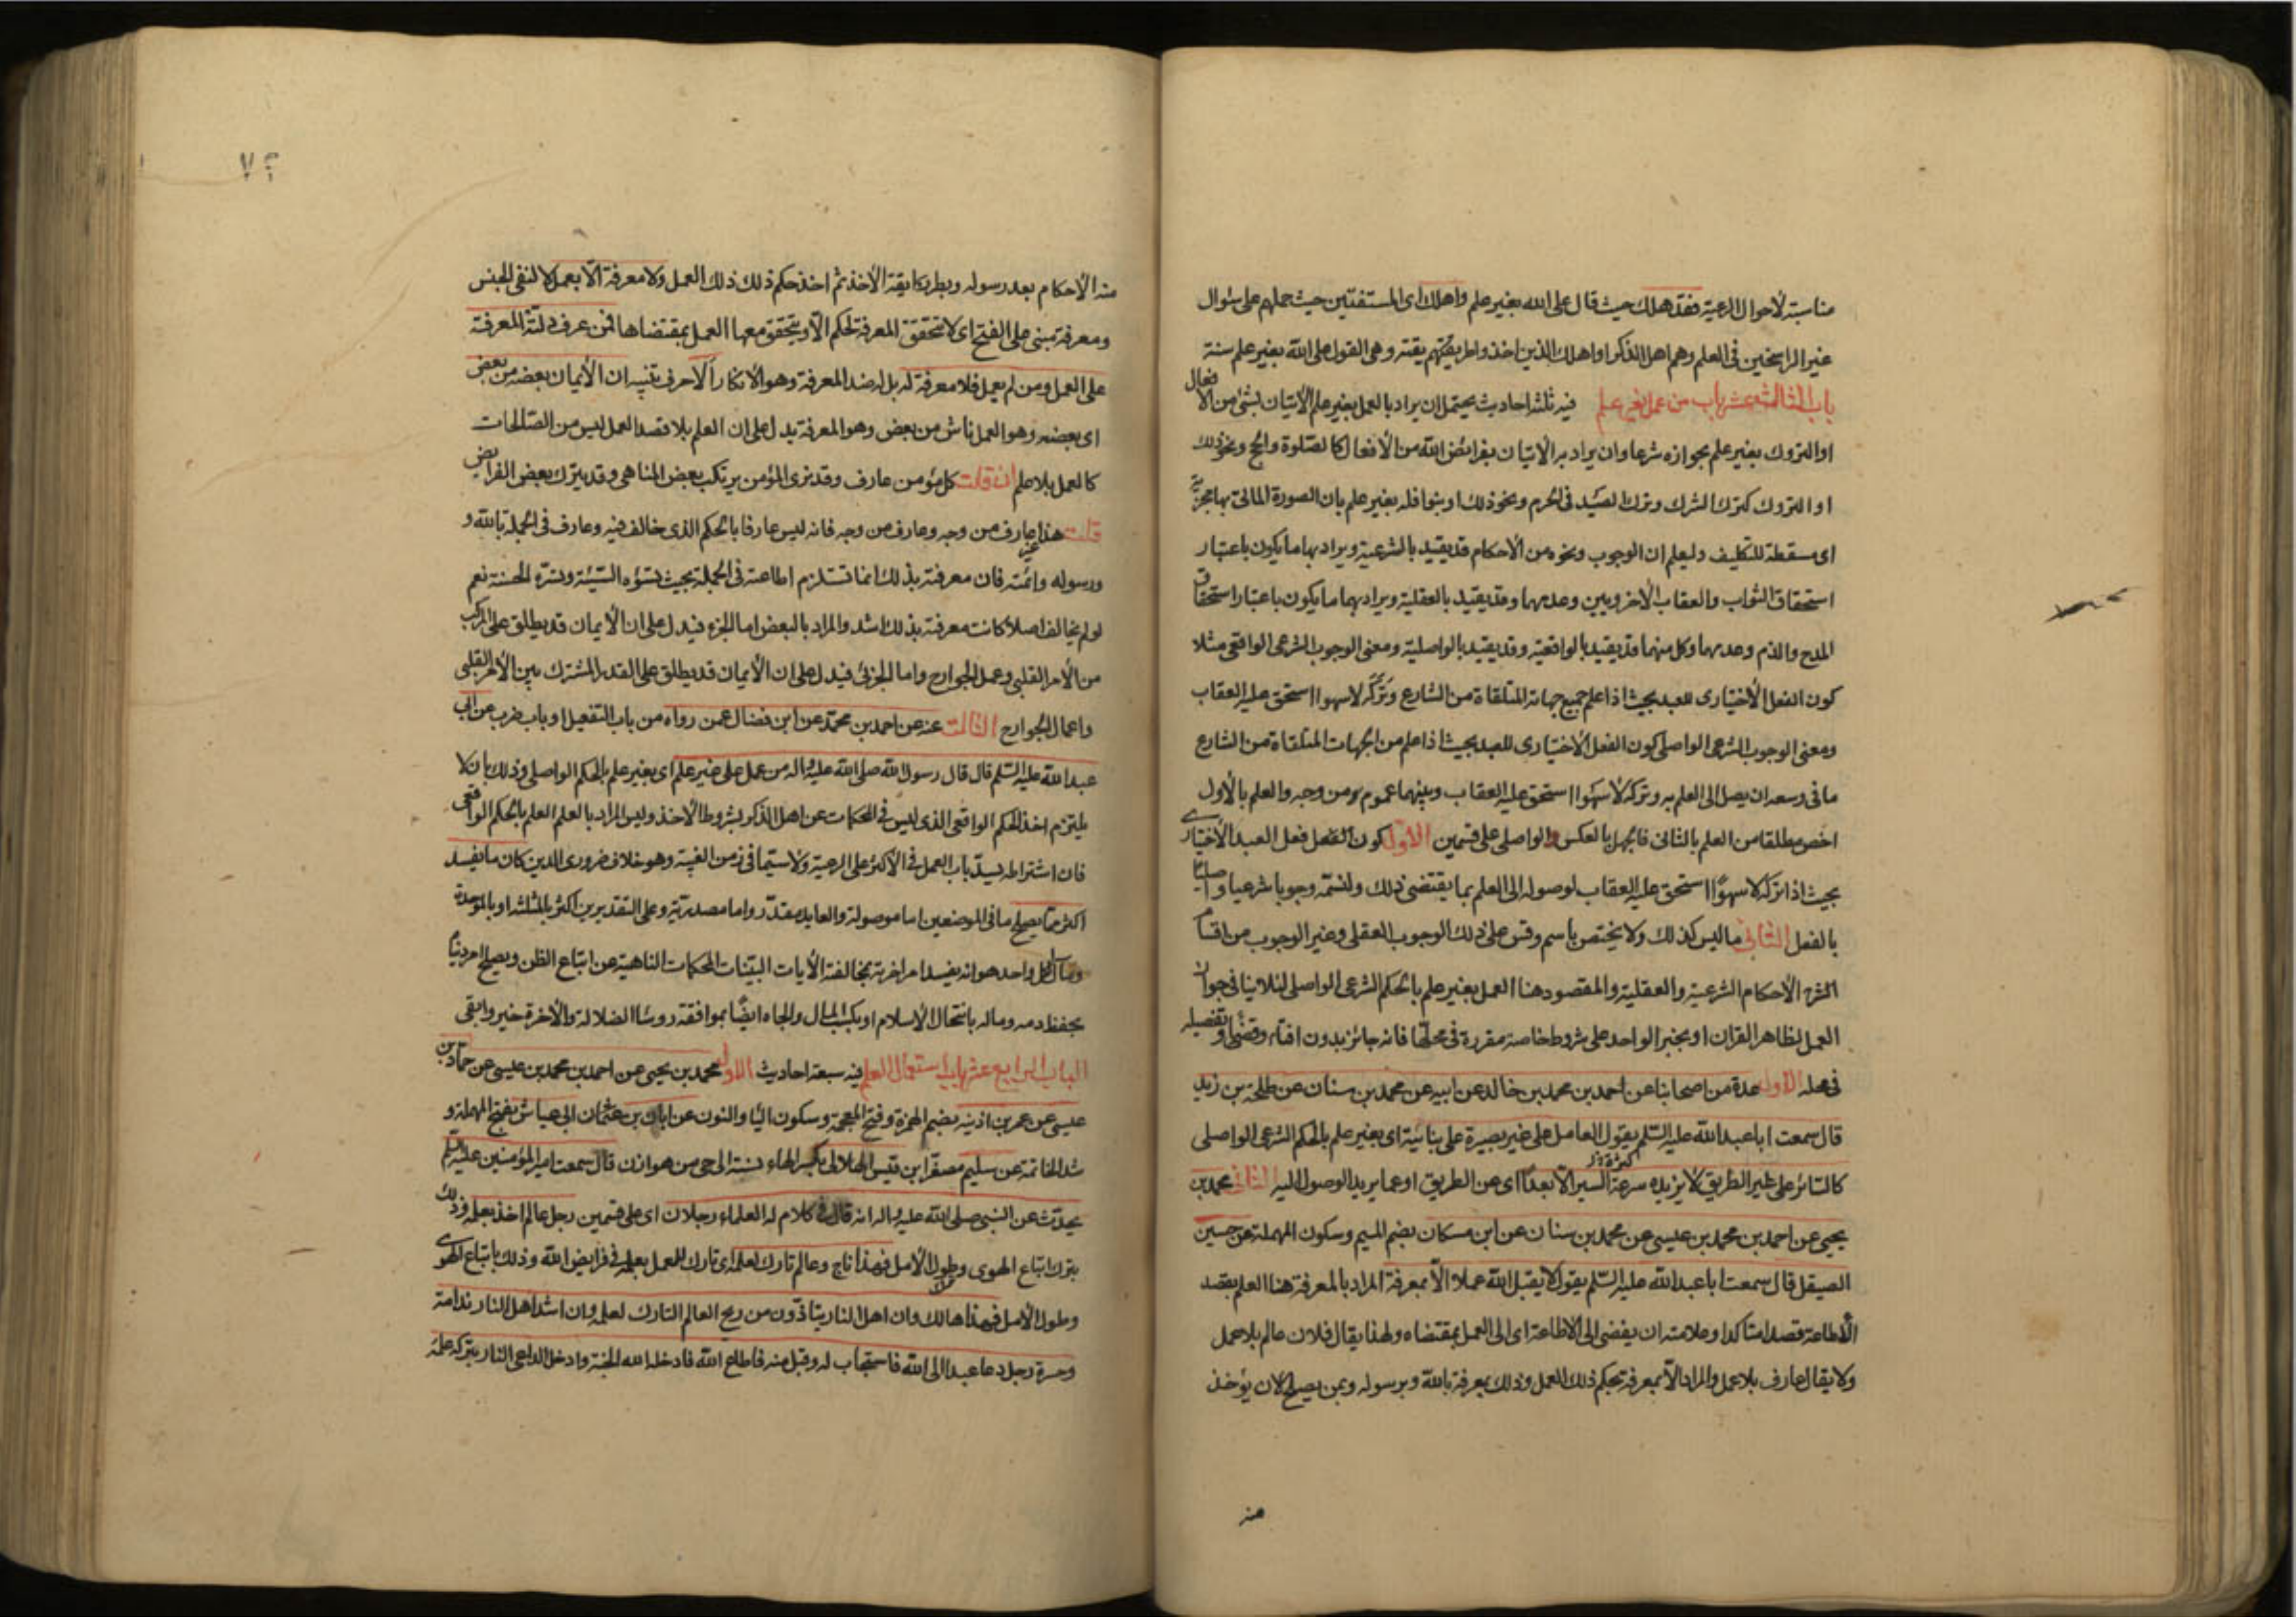 مناسبة لأحوال الرعية فقد هلك حيث قال على الله بغير علم واهلك اى المستفتين حيث حملهم على سئوال
غير الراسخين فى العلم وهم اهل الذكر او اهلك الذين اخذوا طريقتهم يقته وهى القول على الله بغير علم سنة
باب الثالث عشر باب من عمل بغير علم فيه ثلثة احاديث يحتمل ان يراد بالعمل بغير علم الاتيان بشئ من الأفعال
او التروك بغير علم بجوازه شرعا وان يراد به الاتيان بفرائض الله من الأفعال كالصلوة والحج ونحو ذلك
او التروك كترك الشرك وترك الصيد فى الحرم ونحو ذلك او بنوافله بغير علم بان الصورة المالتى بها مجزية
اى مسقطة للتكليف وليعلم ان الوجوب ونحوه من الأحكام قد يقيد بالشرعية ويراد بها ما يكون باعتبار
استحقاق الثواب والعقاب الأخرويين وعدمهما وقد يقيد بالعقلية ويراد بهما ما يكون باعتبار استحقاق
المدح والذم وعدمهما وكل منهما قد يقيد بالواقعية وقد يقيد بالواصلية ومعنى الوجوب الشرعى الواقعى مثلا
كون الفعل الأختيارى للعبد بحيث اذا علم جميع جهاته المتلقاة من الشارع وتركه لا سهوا استحق عليه العقاب
ومعنى الوجوب الشرعى الواصلى كون الفعل الأختيارى للعبد بحيث اذا علم من الجهات المتلقاة من الشارع
ما فى وسعه ان يصل الى العلم به وتركه لا سهوا استحق عليه العقاب وبينهما عموم من وجه والعلم بالأول
اخص مطلقا من العلم بالثانى فالجهل بالعكس والواصلى على قسمين الأول كون الفعل فعل العبد الأختيارى
بحيث اذا تركه لا سهوا استحق عليه العقاب لوصوله الى العلم بما يقتضى ذلك ولنسمه وجوبا شرعيا واصليا
بالفعل الثانى ما ليس كذلك ولا يختص باسم وقس على ذلك الوجوب العقلى وغير الوجوب من اقسام
الأحكام الشرعية والعقلية والمقصود هنا العمل بغير علم بالحكم الشرعى الواصلى لئلا ينافى جواز
العمل بظاهر القران او بخبر الواحد على شروط خاصة مقررة فى محلها فانه جائز بدون افتاء وقضاء وتفصيله
فى محله الأول عدة من اصحابنا عن احمد بن محمد بن خالد عن ابيه عن محمد بن سنان عن طلحة بن زيد
قال سمعت ابا عبد الله عليه السلم يقول العامل على غير بصيرة على بنائية اى بغير علم بالحكم الشرعى الواصلى
كالسائر على غير الطريق لا يزيده سرعة السير الا بعدا اى عن الطريق او عما يريد الوصول اليه الثانى محمد بن
يحيى عن احمد بن محمد بن عيسى عن محمد بن سنان عن ابن مسكان بضم الميم وسكون المهملة عن حسين
الصيقل قال سمعت ابا عبد الله عليه السلم يقول لا يقبل الله عملا الا بمعرفة المراد بالمعرفة هنا العلم بقصد
الأطاعة قصدا متاكدا وعلامته ان يفضى الى الاطاعة اى الى العمل بمقتضاه ولهذا يقال فلان عالم بلا عمل
ولا يقال عارف بلا عمل والمراد الا بمعرفة بحكم ذلك العمل وذلك بمعرفة بالله وبرسوله وبمن يصح لان يؤخذ
منه
٧٢
منه الأحكام بعد رسوله وبطريقة الأخذ ثم اخذ حكم ذلك ذلك العمل ولا معرفة الا بعمل لا لنفى الجنس
ومعرفة مبنى على الفتح اى لا تتحقق المعرفة لحكم الا ويتحقق معها العمل بمقتضاها فمن عرف دلته المعرفة
على العمل ومن لم يعمل فلا معرفة له بل له ضد المعرفة وهو الأنكار ان الأيمان بعضه من بعض
اى بعضه وهو العمل ناش من بعض وهو المعرفة يدل على ان العلم بلا قصد العمل ليس من الصالحات
كالعمل بلا علم ان قلت كل مؤمن عارف وقد نرى المؤمن يرتكب بعض المناهى وقد يترك بعض الفرايض
قلت هذا عارف من وجه وغير عارف من وجه فانه ليس عارفا بالحكم الذى خالف فيه وعارف فى الجملة بالله و
ورسوله وائمته فان معرفته بذلك انما تستلزم اطاعته فى الجملة بحيث تسؤه السيئة وتسره الحسنة نعم
لو لم يخالف اصلا كانت معرفته بذلك اشد والمراد بالبعض اما الجزء فيدل على ان الأيمان قد يطلق على المركب
من الأمر القلبى وعمل الجوارح واما الجزئى فيدل على ان الأيمان قد يطلق على القدر المشترك بين الأمر القلبى
واعمال الجوارح الثالث عنه عن احمد بن محمد عن ابن فضال عمن رواه من باب التفعيل او باب ضرب عن ابى
عبد الله عليه السلم قال قال رسول الله صلى الله عليه واله من عمل على غير علم اى بغير علم بالحكم الواصلى وذلك بان لا
يلتزم اخذ الحكم الواقعى الذى ليس فى المحكمات عن اهل الذكر بشروط الأخذ وليس المراد بالعلم العلم بالحكم الواقعى
فان اشتراطه يسد باب العمل فى الأكثر على الرعية ولا سيما فى زمن الغيبة وهو خلاف ضرورى الدين كان ما يفسد
اكثر مما يصلح ما فى الموضعين اما موصولة والعايد مقدر واما مصدرية وعلى التقديرين اكثر بالمثلثة او بالموحدة
ومآل كل واحد هو انه يفسد امر اخرته بمخالفة الأيات البينات المحكمات الناهية عن اتباع الظن ويصلح امر دنياه
بحفظ دمه وماله بانتحال الأسلام او بكسب المال والجاه ايضا بموافقة روساء الضلالة والأخرة خير وابقى
الباب الرابع عشر باب استعمال العلم فيه سبعة احاديث الأول محمد بن يحيى عن احمد بن محمد بن عيسى عن حماد بن
عيسى عن عمر بن اذينه بضم الهمزة وفتح المعجمة وسكون اليا والنون عن ابان بن ابى عياش بفتح المهملة و
شد الخاتمة عن سليم مصغرا ابن قيس الهلالى بكسر الهاء نسبة الى حى من هوازن قال سمعت امير المؤمنين عليه السلم
يحدث عن النبى صلى الله عليه واله انه قال فى كلام له العلماء رجلان اى على قسمين رجل عالم اخذ بعلمه وذلك
بترك اتباع الهوى وطول الأمل فهذا ناج وعالم تارك لعلمه اى تارك للعمل بعلمه فى فرايض الله وذلك باتباع الهوى
وطول الأمل فهذا هالك وان اهل النار يتاذون من ريح العالم التارك لعلمه وان اشد اهل النار ندامة
وحسرة رجل دعا عبدا الى الله فاستجاب له وقبل منه فاطاع الله فادخله الله الجنة وادخل الداعى النار بتركه علمه